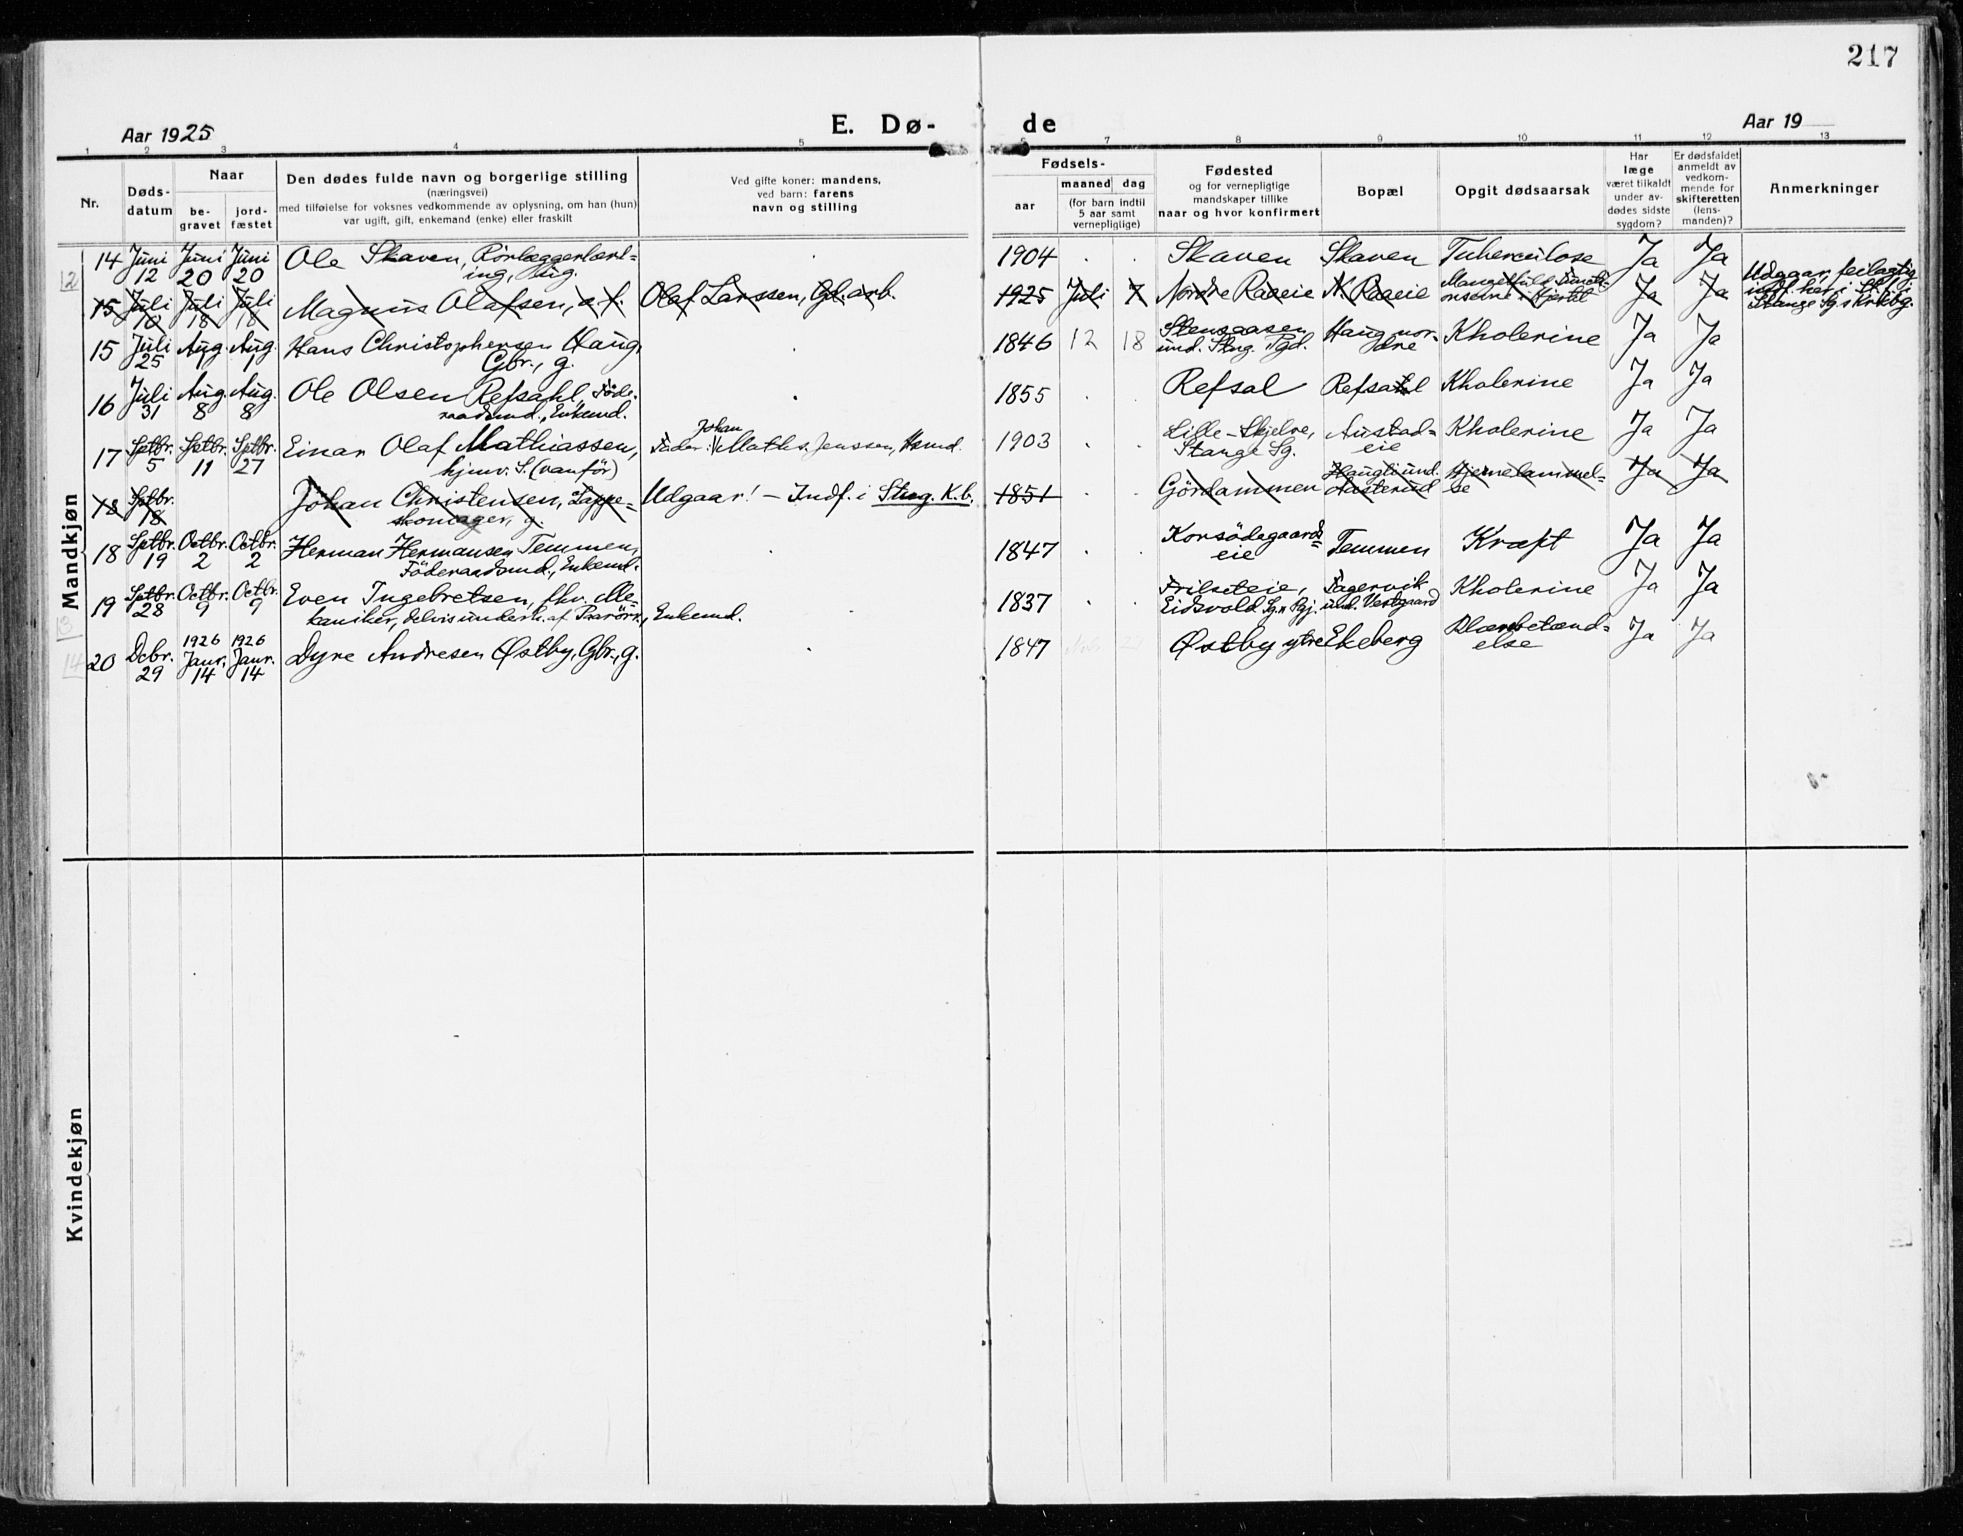 217
Aar 1925
E. Dø- de
Aar 19
1 2 3 4 5 6 7 8 9 10 11 12 13
Nr.
Døds-
datum
Naar
be-
gravet
jord-
fæstet
Den dødes fulde navn og borgerlige stilling
(næringsvei)
med tilføielse for voksnes vedkommende av oplysning, om han (hun)
var ugift, gift, enkemand (enke) eller fraskilt
Ved gifte koner: mandens,
ved barn: farens
navn og stilling
Fødsels-
aar
maaned dag
(for barn indtil
5 aar samt
vernepligtige)
Fødested
og for vernepligtige
mandskaper tillike
naar og hvor konfirmert
Bopæl
Opgit dødsaarsak
Har
læge
været tilkaldt
under av-
dødes sidste
sygdom?
Er dødsfaldet
anmeldt av
vedkom-
mende for
skifteretten
(lens-
manden)?
Anmerkninger
Mandkjøn
14 Juni 12 Juni 20 Juni 20 Ole Skaven, Rörlæggerlærl-
ing, Ug. 1904 Skaven Skaven Tuberculose Ja Ja
15 Juli 10 Juli 18 Juli 18 Magnus Olafsen, u. f. Olaf Larssen, Gl. arb. 1925 Juli 7 Nordre Raaeie N. Raaeie Mangelfuld Functi-
onsevne i Hjertet Ja Ja Udgaar, feilagtig
indf. her i
Stange Sg.s Krkbg.
15 Juli 25 Aug. 1 Aug. 1 Hans Christophersen Haug,
Gbr., g. 1846 12 18 Stensaasen
und. Stng. Pgd. Haug nor-
dre Kholerine Ja Ja
16 Juli 31 Aug. 8 Aug. 8 Ole Olsen Refsahl, Föde-
raadsmd., Enkemd. 1855 Refsal Refsahl Kholerine Ja Ja
17 Sptbr. 5 Sptbr. 11 Sptbr. 27 Einar Olaf Mathiassen,
hjmv. S. (vanför) Fader: Johan Maths. Jenssen, Hsmd. 1903 Lille-Skjelve,
Stange Sg. Austad-
eie Kholerine Ja Ja
18 Sptbr. 18 Johan Christensen, Lappe-
skomager, g. Udgaar! - Indf. i Stng. K.b. 1851 Gördammen Haugli und.
Aasterud Hjernelammel-
se Ja Ja
18 Sptbr. 19 Octbr. 2 Octbr. 2 Herman Hermansen Temmen,
Föderaadsmd., Enkemd. 1847 Korsödegaards-
eie Temmen Kræft Ja Ja
19 Sptbr. 28 Octbr. 9 Octbr. 9 Even Ingebretsen, fhv. Me-
kaniker, delvis underh. af Parörn., Enkemd. 1837 Frilseteie,
Eidsvold Sg. Fagervik
und. Vestgaard Kholerine Ja Ja
20 Dcbr. 29 1926 Janr. 14 1926 Janr. 14 Dyre Andresen Østby, Gbr., g. 1847 Østby ytre Ekeberg Blærebetænd-
else Ja Ja
Kvindekjøn